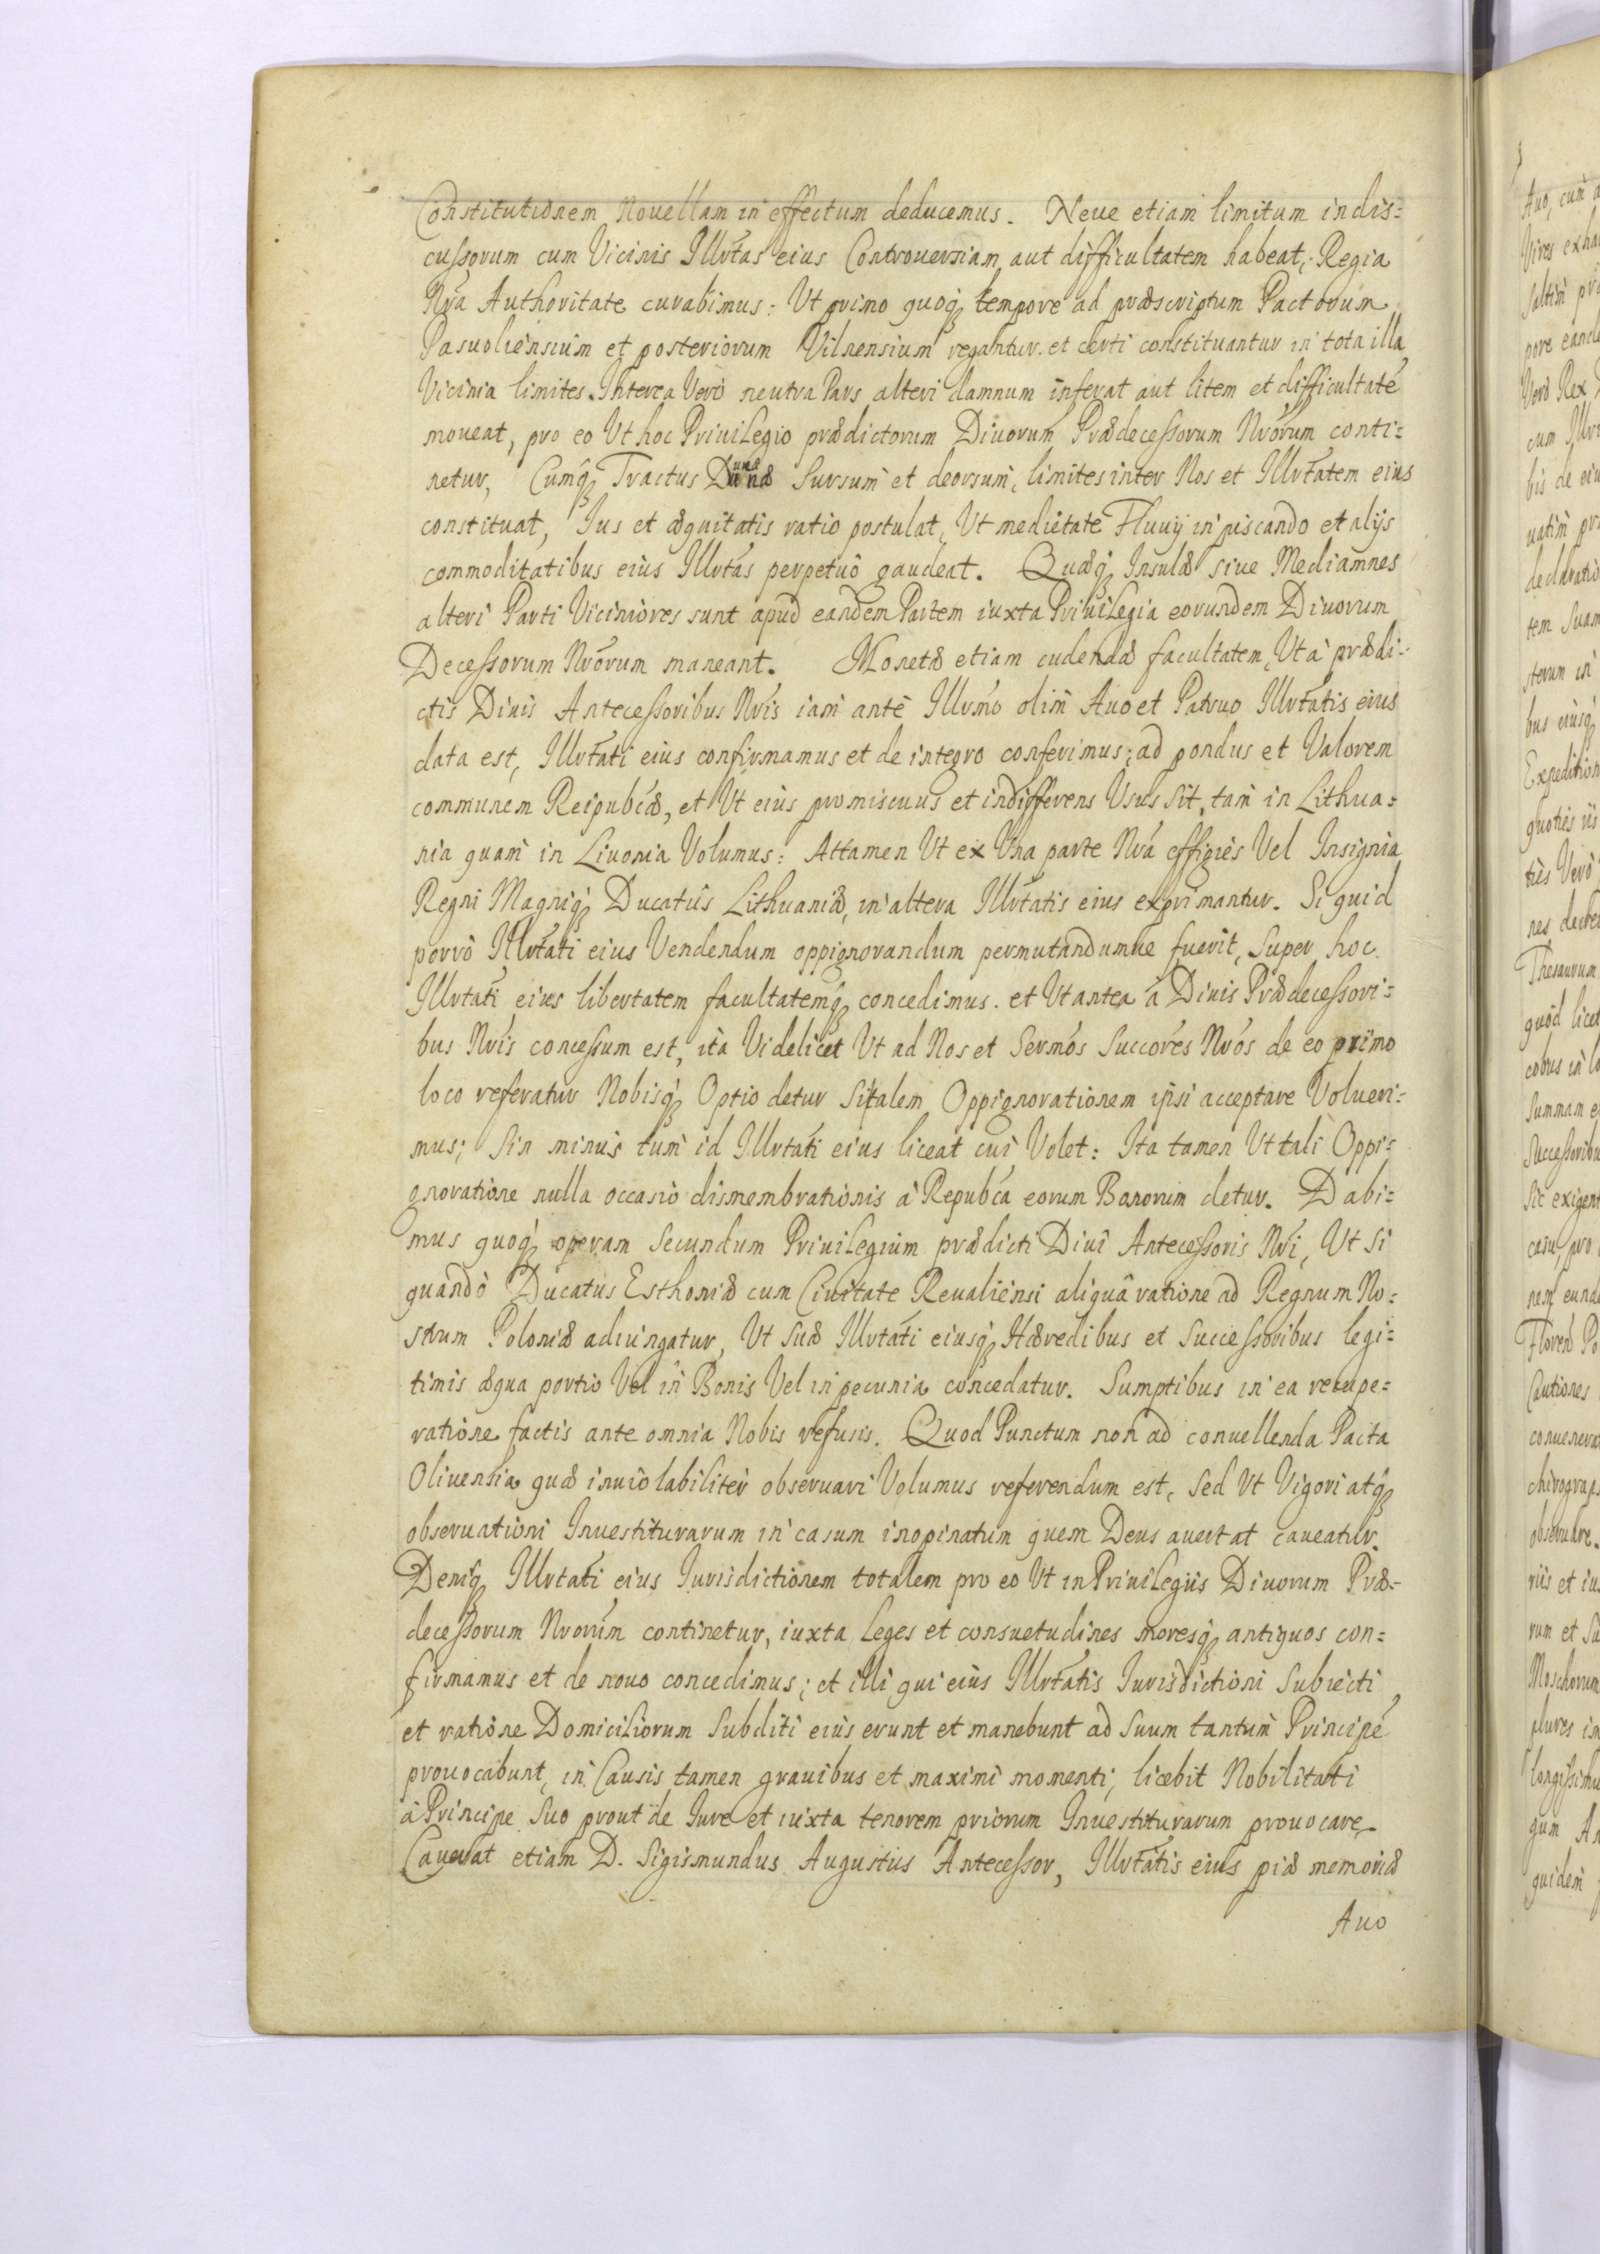 Constitutionem Nouellam in effectum deducemus. Neue etiam limitum indis:
cussorum cum Vicinis Illrtas eius Controuersiam aut difficultatem habeat, Regia
Nrã Authoritate curabimus: Ut primo quoq; tempore ad præscriptum Pactorum
Pasuoliensium et posteriorum Vilnensium regantur. et certi constituantur in tota illa
Vicinia limites. Interea Verò neutra Pars alteri damnum inferat aut litem et difficultatē
moueat, pro eo Ut hoc Priuilegio prædictorum Diuorum Prædecessorum Nrorum conti:
netur, Cumq; Tractus Dunæ Sursum et deorsum, limites inter Nos et Illrtatem eius
constituat, Jus et æquitatis ratio postulat, Ut medietate Fluuij in piscando et alijs
commoditatibus eius Illrtas perpetuò gaudeat. Quæq; Insulæ siue Mediamnes
alteri Parti Viciniores sunt apud eandem Partem iuxta Priuilegia eorundem Diuorum
Decessorum Nrorum maneant. Monetæ etiam cudendæ facultatem, Ut à prædi:
ctis Diuis Antecessoribus Nris iam antè Illrmo olim Auo et Patruo Illrtatis eius
data est, Illrtati eius confirmamus et de integro conferimus; ad pondus et Valorem
communem Reipubcæ, et Ut eius promiscuus et indifferens Usus sit, tam in Lithua:
nia quam in Liuonia Volumus: Attamen Ut ex Una parte Nrã effigies Vel Insignia
Regni Magniq; Ducatûs Lithuaniæ, in altera Illrtatis eius exprimantur. Si quid
porrò Illrtati eius Vendendum oppignorandum permutandumue fuerit, Super hoc
Illrtati eius libertatem facultatemq; concedimus. et Ut antea à Diuis Prædecessori:
bus Nris concessum est, ita Videlicet Ut ad Nos et Sermos Succores Nros de eo primo
loco referatur Nobisq; Optio detur Si talem Oppignorationem ipsi acceptare Volueri:
mus; Sin minus tum id Illrtati eius liceat cui Volet: Ita tamen Ut tali Oppi:
gnoratione nulla occasio dismembrationis à Repubca eorum Bonorum detur. Dabi:
mus quoq; operam Secundum Priuilegium prædicti Diui Antecessoris Nri, Ut Si
quandò Ducatus Esthoniæ cum Ciuitate Reualiensi aliquâ ratione ad Regnum No:
strum Poloniæ adiungatur, Ut Suæ Illrtati eiusq; Hæredibus et Successoribus legi:
timis æqua portio Vel in Bonis Vel in pecunia concedatur. Sumptibus in ea recupe:
ratione factis ante omnia Nobis refusis. Quod Punctum non ad conuellenda Pacta
Oliuensia quæ inuiolabiliter obseruari Volumus referendum est, Sed Ut Vigori atq;
obseruationi Inuestiturarum in casum inopinatum quem Deus auertat caueatur.
Deniq; Illrtati eius Jurisdictionem totalem pro eo Ut in Priuilegiis Diuorum Præ:
decessorum Nrorum continetur, iuxta Leges et consuetudines moresq; antiquos con:
firmamus et de nouo concedimus; et illi qui eius Illrtatis Jurisdictioni Subiecti
et ratione Domiciliorum Subditi eius erunt et manebunt ad Suum tantum Principē
prouocabunt, in Causis tamen grauibus et maximi momenti, licebit Nobilitati
à Principe Suo prout de Jure et iuxta tenorem priorum Inuestiturarum prouocare.
Cauerat etiam D. Sigismundus Augustus Antecessor, Illrtatis eius piæ memoriæ
Auo